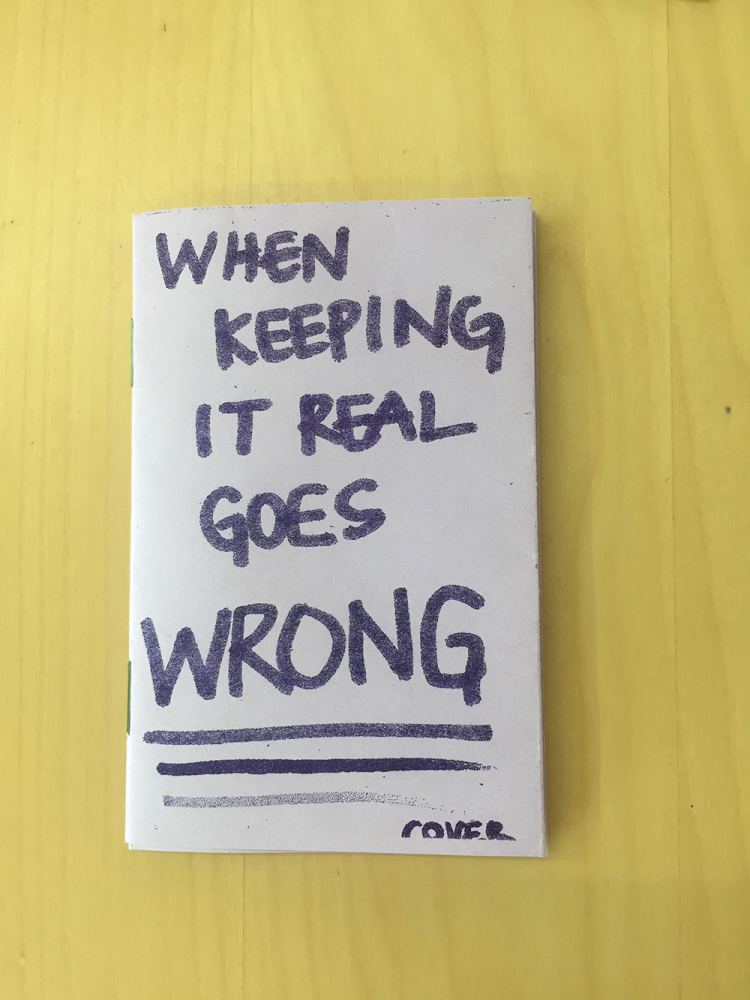 WHEN
KEEPING
IT REAL
GOES
WRONG
COVER